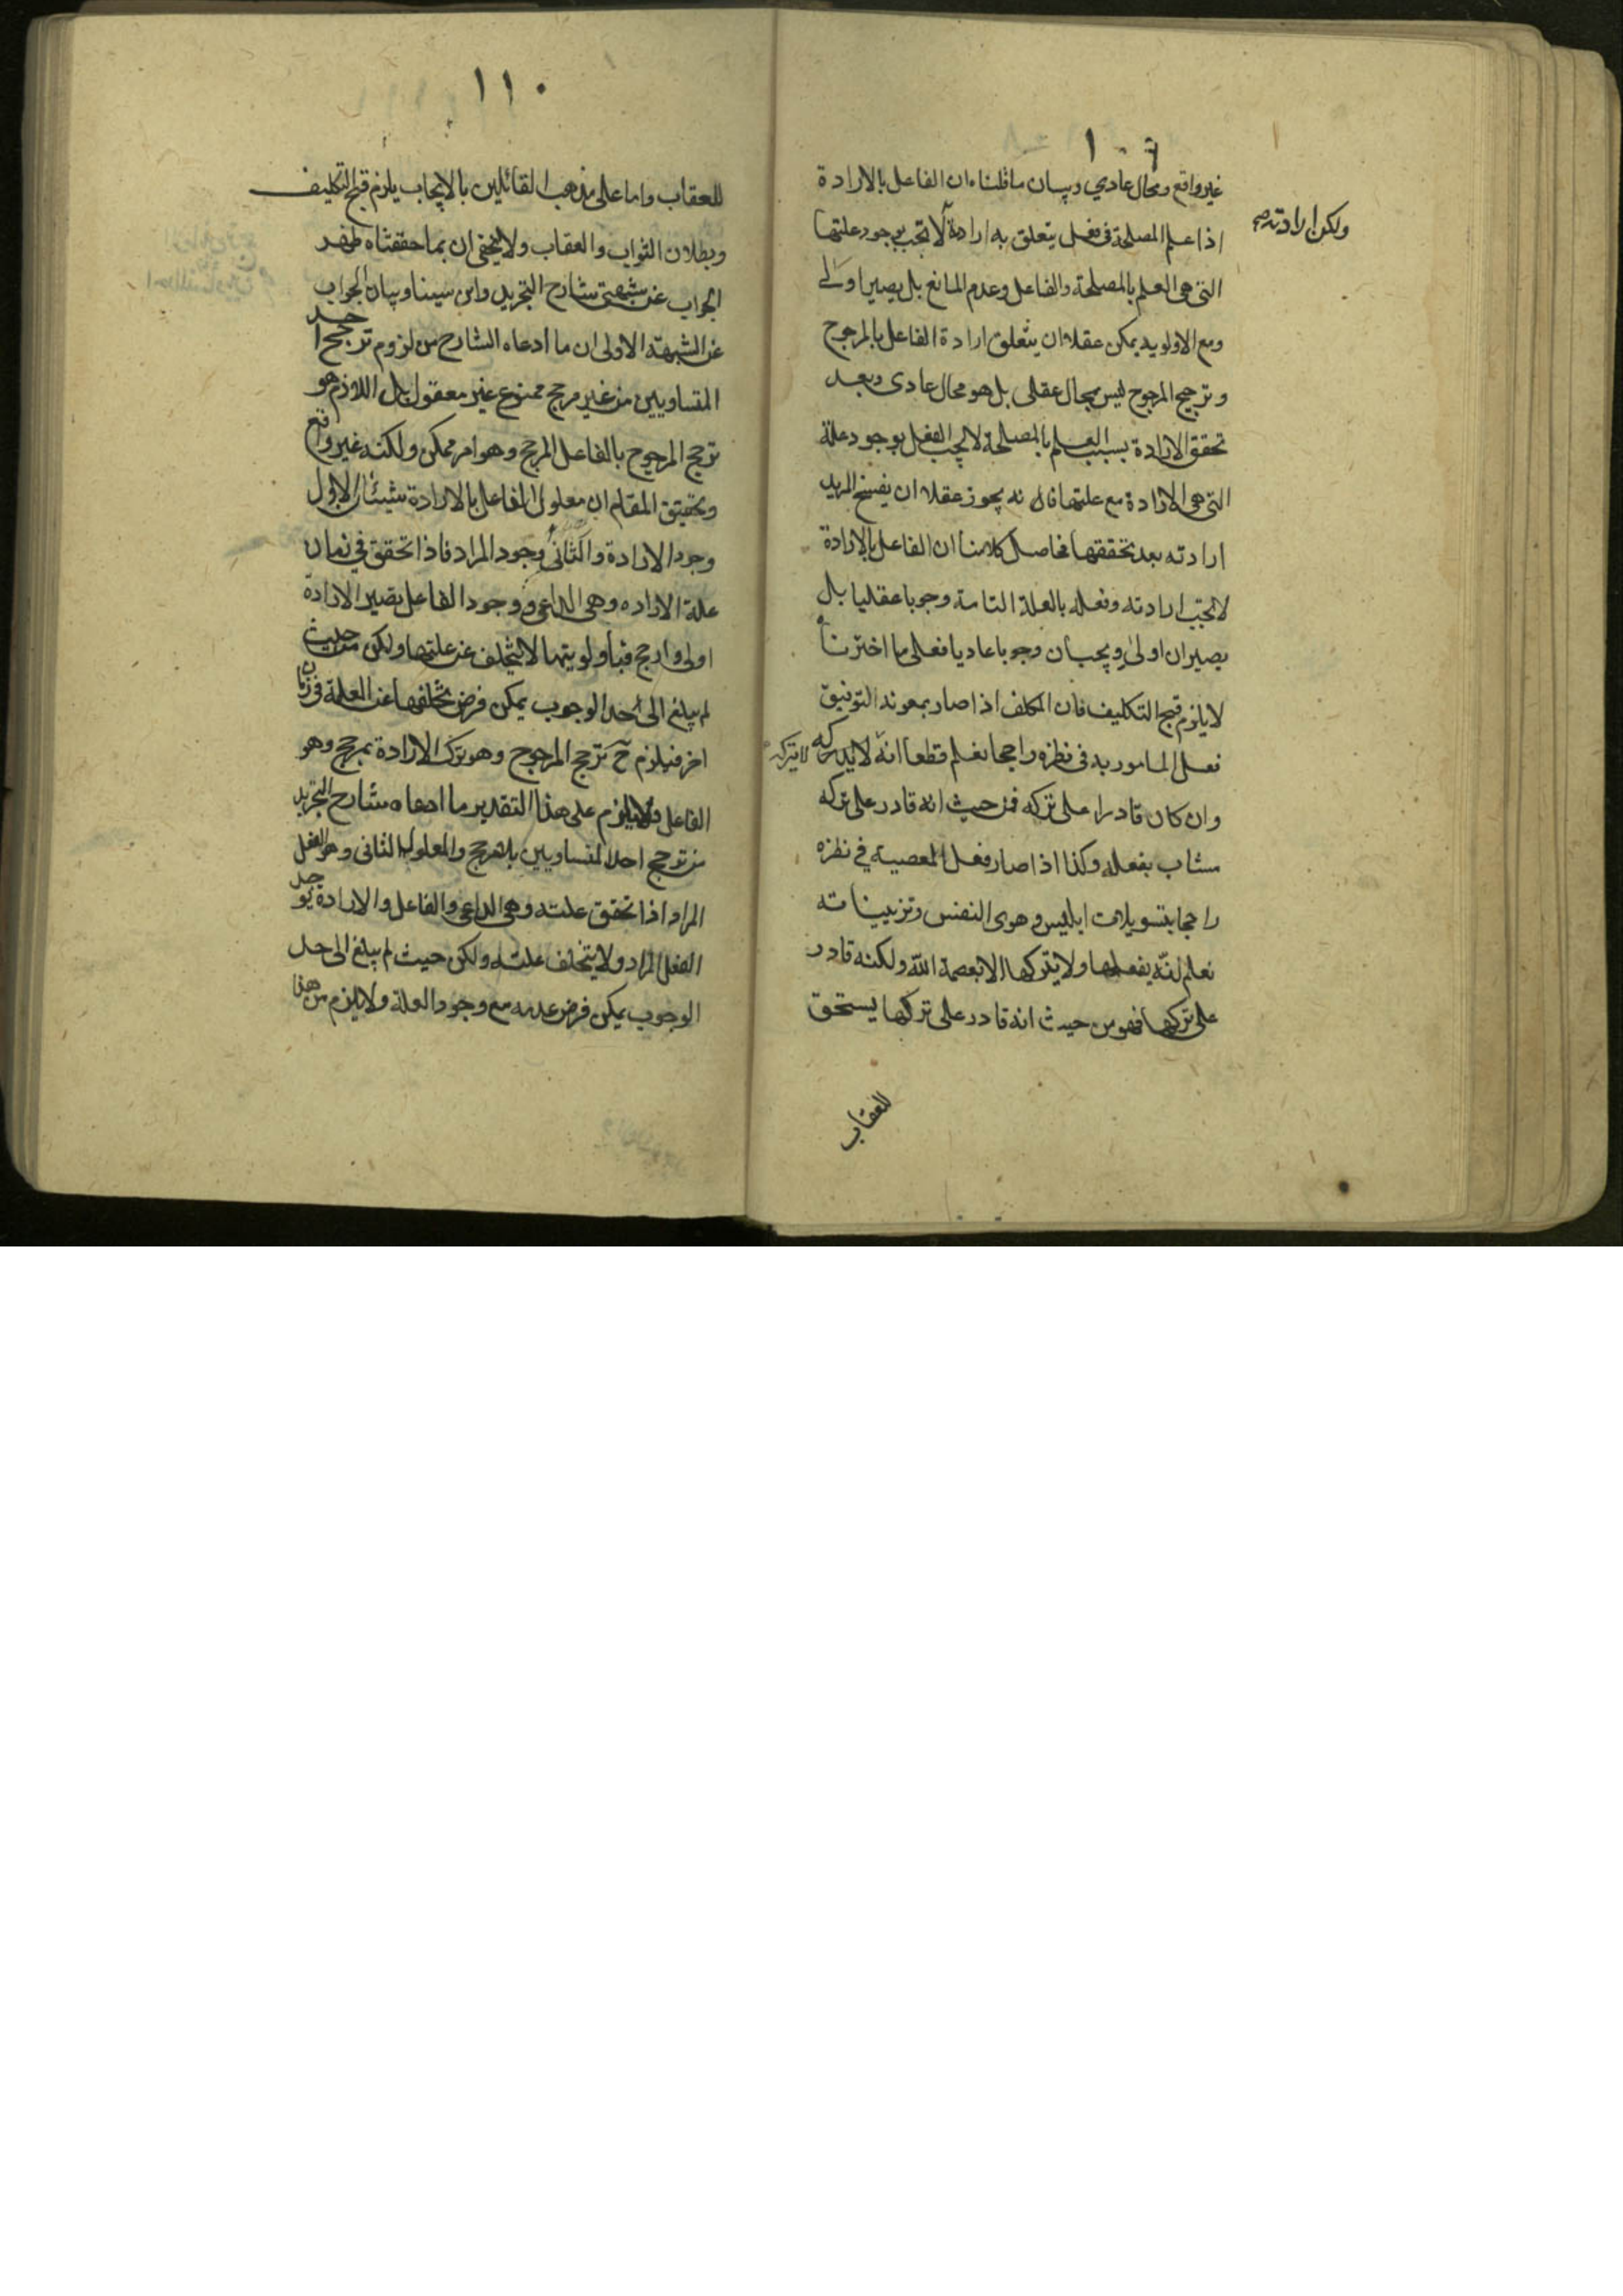 ١٠٩
غير واقع ومحال عادي وبيان ما قلناه ان الفاعل بالارادة
ولكن ارادته صح
اذا علم المصلحة في فعل يتعلق به ارادة لا تجب بوجود علتها
التي هي العلم بالمصلحة والفاعل وعدم المانع بل يصير اولى
ومع الاولوية يمكن عقلا ان يتعلق ارادة الفاعل بالمرجوح
وترجيح المرجوح ليس بمحال عقلي بل هو محال عادي وبعد
تحقق الارادة بسبب العلم بالمصلحة لا يجب الفعل بوجود علة
التي هي الارادة مع علتها فانه يجوز عقلا ان يفسخ المريد
ارادته بعد تحققها فحاصل كلامنا ان الفاعل بالارادة
لا تجب ارادته وفعله بالعلة التامة وجوبا عقليا بل
يصيران اولى ويجبان وجوبا عاديا فعلى ما اخترناه
لا يلزم قبح التكليف فان المكلف اذا صار بمعونة التوفيق
فعل المامور به في نظره راجحا نعلم قطعا انه لا يتركه
لا يتركه
وان كان قادرا على تركه فمن حيث انه قادر على تركه
مثاب بفعله وكذا اذا صار فعل المعصية في نظره
راجحا بتسويلات ابليس وهوى النفس وتزييناته
نعلم انه يفعلها ولا يتركها الا بعصمة الله ولكنه قادر
على تركها فهو من حيث انه قادر على تركها يستحق
للعقاب
١١٠
للعقاب واما على مذهب القائلين بالايجاب يلزم قبح التكليف
وبطلان الثواب والعقاب ولا يخفى ان بما حققناه ظهر
الجواب عن شبهتي شارح التجريد وابن سينا وبيان الجواب
عن الشبهة الاولى ان ما ادعاه الشارح من لزوم ترجح احد
المتساويين من غير مرجح ممنوع غير معقول بل اللازم هو
ترجح المرجوح بالفاعل المرجح وهو امر ممكن ولكنه غير واقع
وتحقيق المقام ان معلول الفاعل بالارادة شيئان الاول
وجود الارادة والثاني وجود المراد فاذا تحقق في زمان
علة الاراده وهي الداعي ووجود الفاعل يصير الارادة
اولى وارجح فباولويتها لا يتخلف عن علتها ولكن من حيث
لم يبلغ الى حد الوجوب يمكن فرض تخلفها عن العلة في زمان
اخر فيلزم ح ترجح المرجوح وهو ترك الارادة بمرجح وهو
الفاعل ولا يلزم على هذا التقدير ما ادعاه شارح التجريد
من ترجح احد المتساويين بلا مرجح والمعلول الثاني وهو الفعل
المراد اذا تحقق علته وهي الداعي والفاعل والارادة يوجد
الفعل المراد ولا يتخلف علته ولكن حيث لم يبلغ الى حد
الوجوب يمكن فرض عدمه مع وجود العلة ولا يلزم من هذا